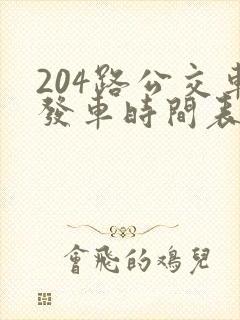 204路公交車
發車時間表
會飛的鴻兒